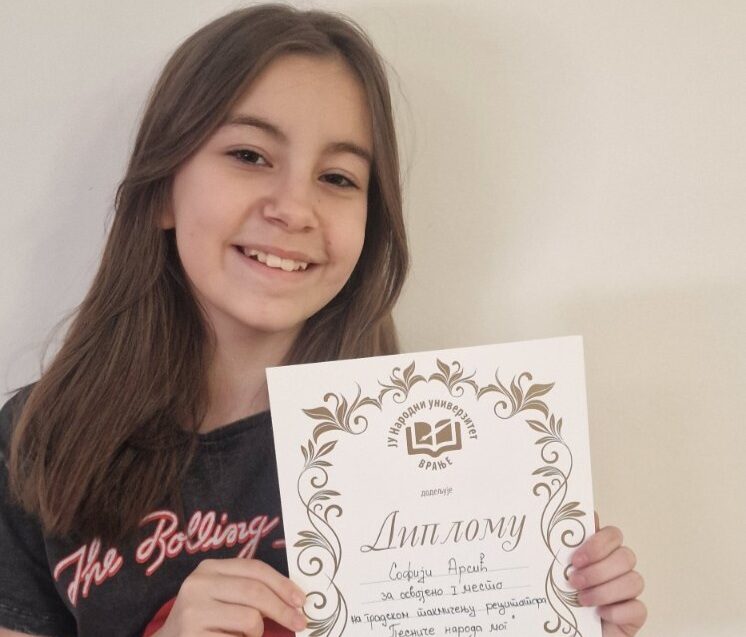 ЈУ Народни универзитет
ВРАЊЕ
додељује
Диплому
Софији Арсић
за освојено I место
на градском такмичењу рецитатора
"Песниче народа мог"
The Rolling